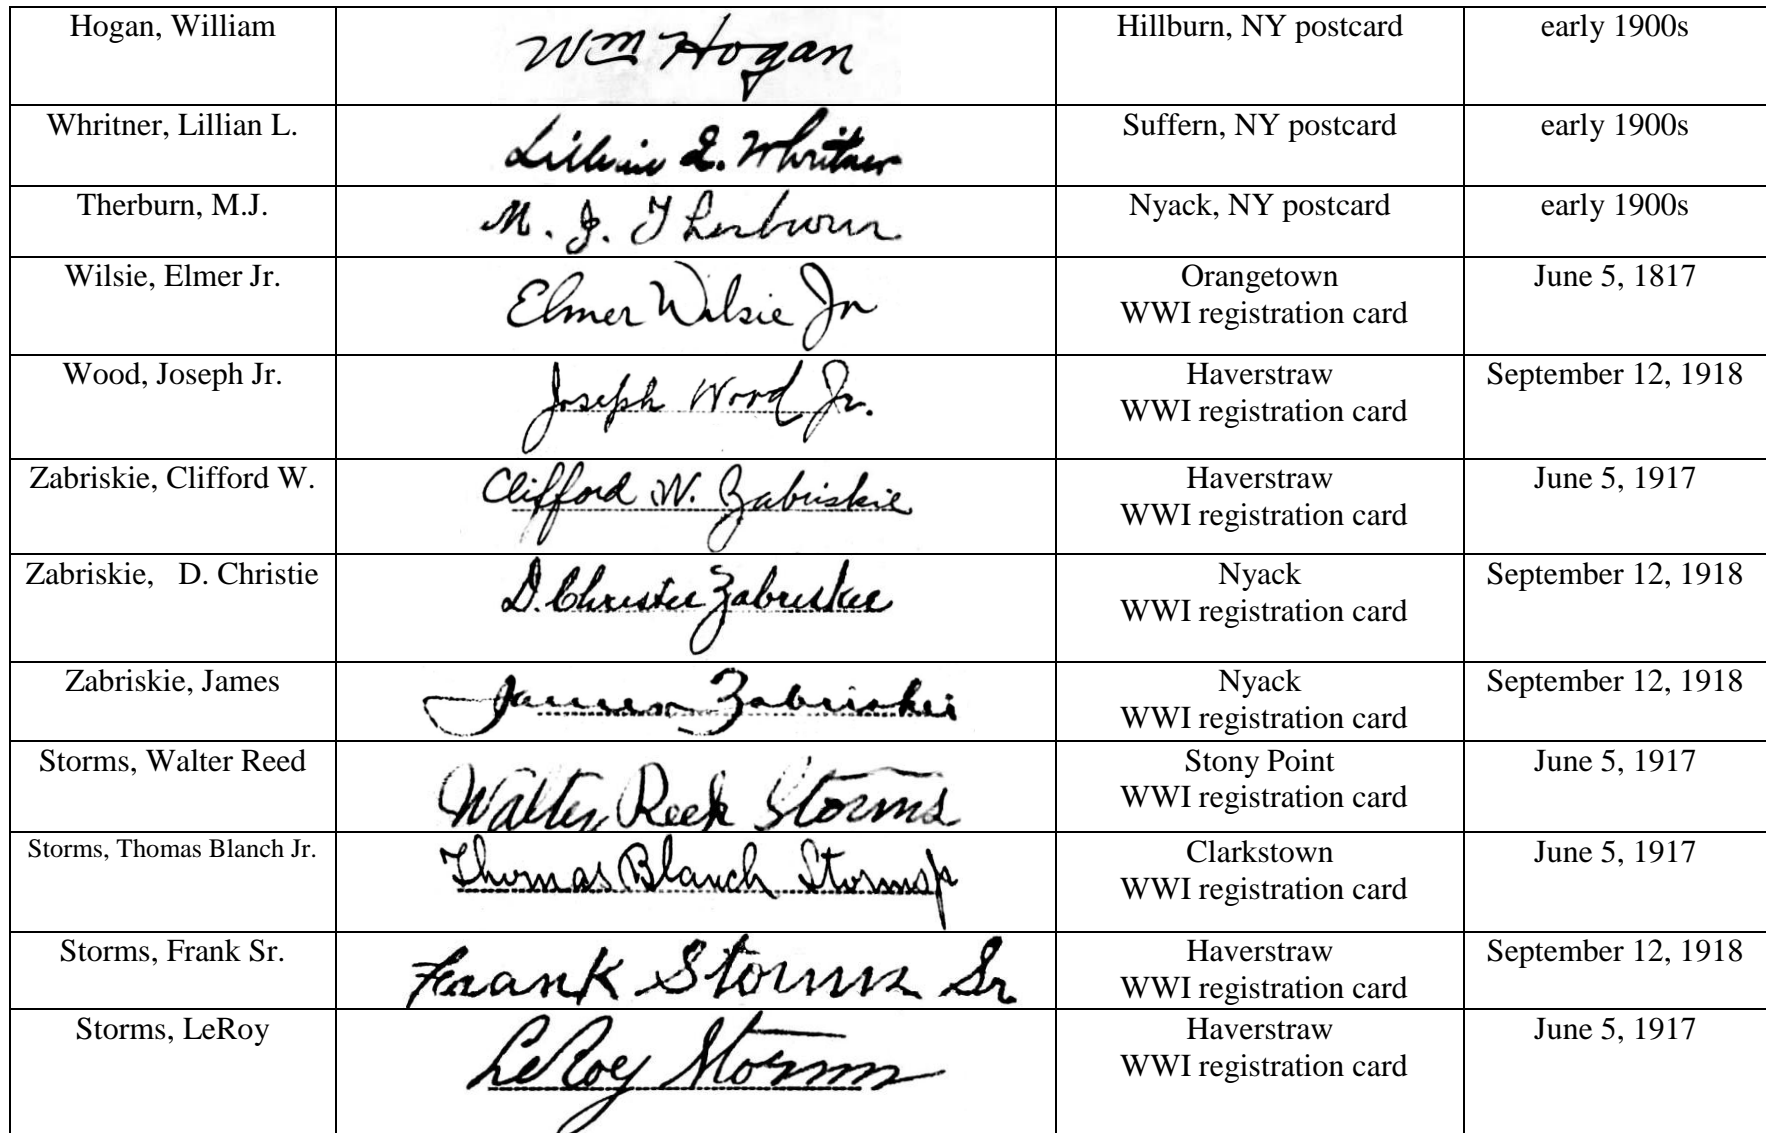 Hogan, William
Wm Hogan
Hillburn, NY postcard
early 1900s
Whritner, Lillian L.
Lillian L. Whritner
Suffern, NY postcard
early 1900s
Therburn, M.J.
M. J. Therburn
Nyack, NY postcard
early 1900s
Wilsie, Elmer Jr.
Elmer Wilsie Jr
Orangetown
WWI registration card
June 5, 1817
Wood, Joseph Jr.
Joseph Wood Jr.
Haverstraw
WWI registration card
September 12, 1918
Zabriskie, Clifford W.
Clifford W. Zabriskie
Haverstraw
WWI registration card
June 5, 1917
Zabriskie, D. Christie
D. Christie Zabriskie
Nyack
WWI registration card
September 12, 1918
Zabriskie, James
James Zabriskie
Nyack
WWI registration card
September 12, 1918
Storms, Walter Reed
Walter Reed Storms
Stony Point
WWI registration card
June 5, 1917
Storms, Thomas Blanch Jr.
Thomas Blanch Storms Jr
Clarkstown
WWI registration card
June 5, 1917
Storms, Frank Sr.
Frank Storms Sr
Haverstraw
WWI registration card
September 12, 1918
Storms, LeRoy
LeRoy Storms
Haverstraw
WWI registration card
June 5, 1917